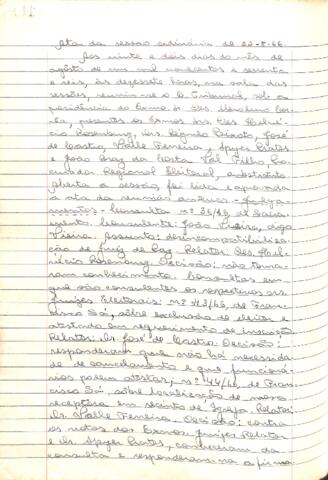 Ata da sessão ordinária de 22-8-66.
Aos vinte e dois dias do mês de
agôsto de um mil novecentos e sessenta
e seis, às dezessete horas, na sala das
sessões, reuniu-se o E. Tribunal, sob a
presidência do Exmo. Sr. Des.
presentes os Exmos. Srs. Des. Helvé-
cio Rosenburg, Drs. Régulo Peixoto, José
de Castro, Valle Ferreira, Spyer Prates
e João Braz da Costa Val Filho, Pro-
curador Regional Eleitoral, substituto.
Aberta a sessão, foi lida e aprovada
a ata da reunião anterior. Julga-
mentos - Consulta nº 36/66, de
Consulente: João Vieira,
Vieira. Assunto: desincompatibiliza-
ção de Juiz de Paz. Relator: Des. Hel-
vécio Rosenburg. Decisão: não toma-
ram conhecimento. Consultas em
que são consulentes os respectivos srs.
Juízes Eleitorais: nº 43/66, de Fran-
cisco Sá, sôbre exclusão de eleitor e
atestado em requerimento de inscrição.
Relator: Dr. José de Castro. Decisão:
responderam que não há necessida-
de de cancelamento e que funcioná-
rios podem atestar; nº 44/66, de Fran-
cisco Sá, sôbre localização de mesa
receptora em recinto de Igreja. Relator:
Dr. Valle Ferreira. Decisão: contra
os votos dos Exmos. Juízes Relator
e Dr. Spyer Prates, conheceram da
consulta e responderam na afirma-